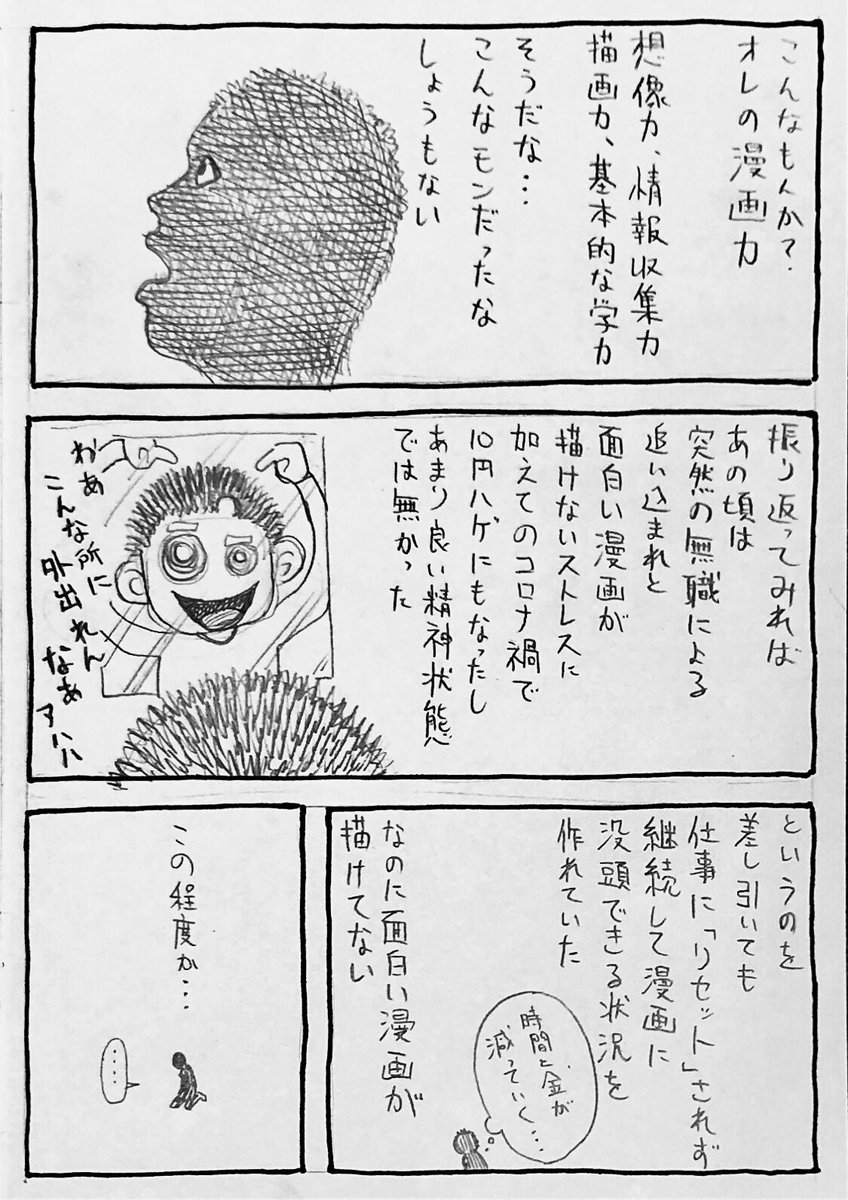 こんなもんか？
オレの漫画力
想像力、情報収集力
描画力、基本的な学力
そうだな・・・
こんなモンだったな
しょうもない
振り返ってみれば
あの頃は
突然の無職による
追い込まれと
面白い漫画が
描けないストレスに
加えてのコロナ禍で
10円ハゲにもなったし
あまり良い精神状態
では無かった
わあ
こんな所に
外出れん
なあ
アハハ
というのを
差し引いても
仕事に「リセット」されず
継続して漫画に
没頭できる状況を
作れていた
時間と金が
減っていく・・・
なのに面白い漫画が
描けてない
この程度か・・・
・・・・